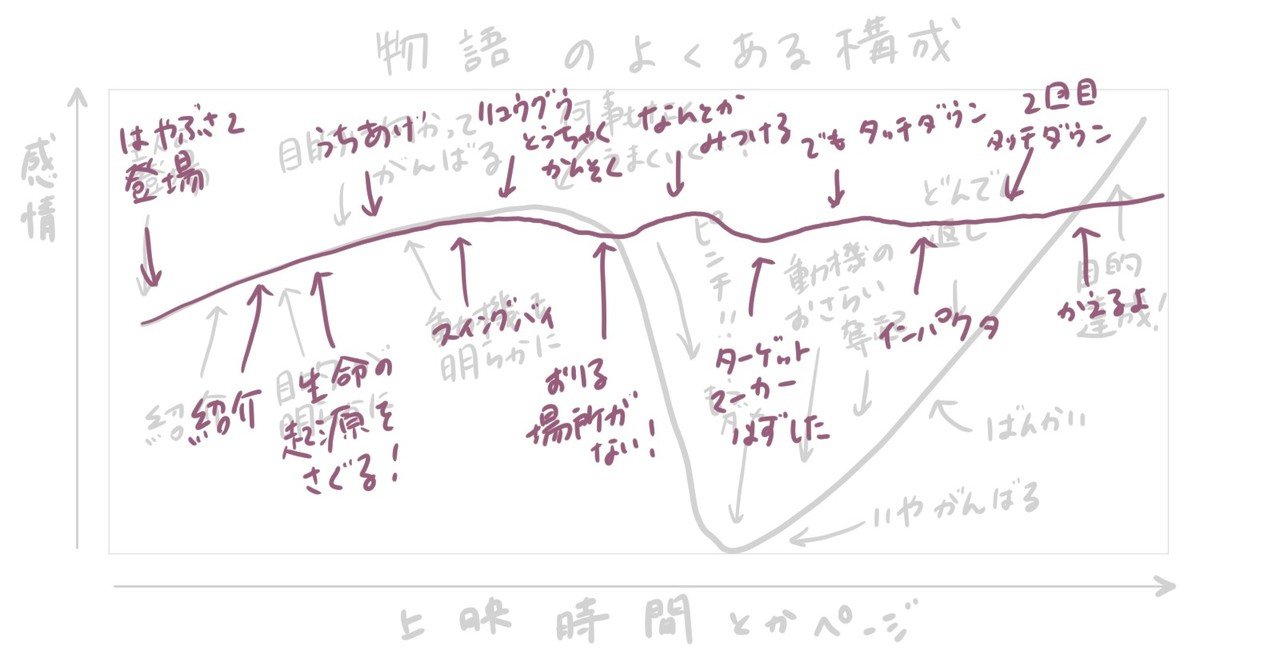 物語のよくある構成
感情
はやぶさ2
登場
うちあげ
リュウグウ
とうちゃく
かんそく
なんとか
みつける
でも タッチダウン
2回目
タッチダウン
目的
がんばる
ピンチ!!
どんでん
返し
紹介
紹介
生命の
起源を
さぐる!
スイングバイ
動機を
明らかに
おりる
場所が
ない!
ターゲット
マーカー
はずした
動機の
おさらい
インパクタ
かえるよ
目的
達成!
ばんかい
いやがんばる
上映時間とかページ